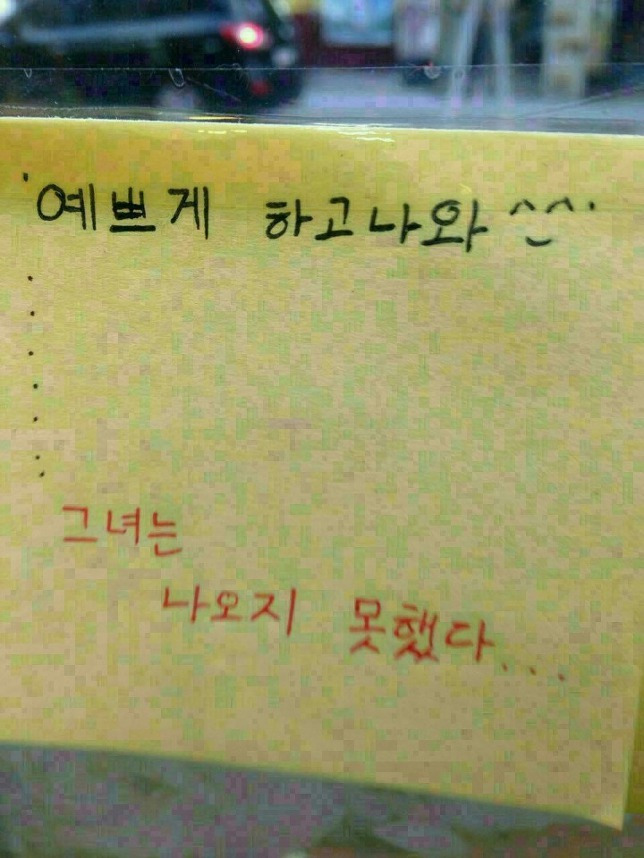 '예쁘게 하고나와 ^‿^'
.
.
.
.
.
.
그녀는
나오지 못했다...